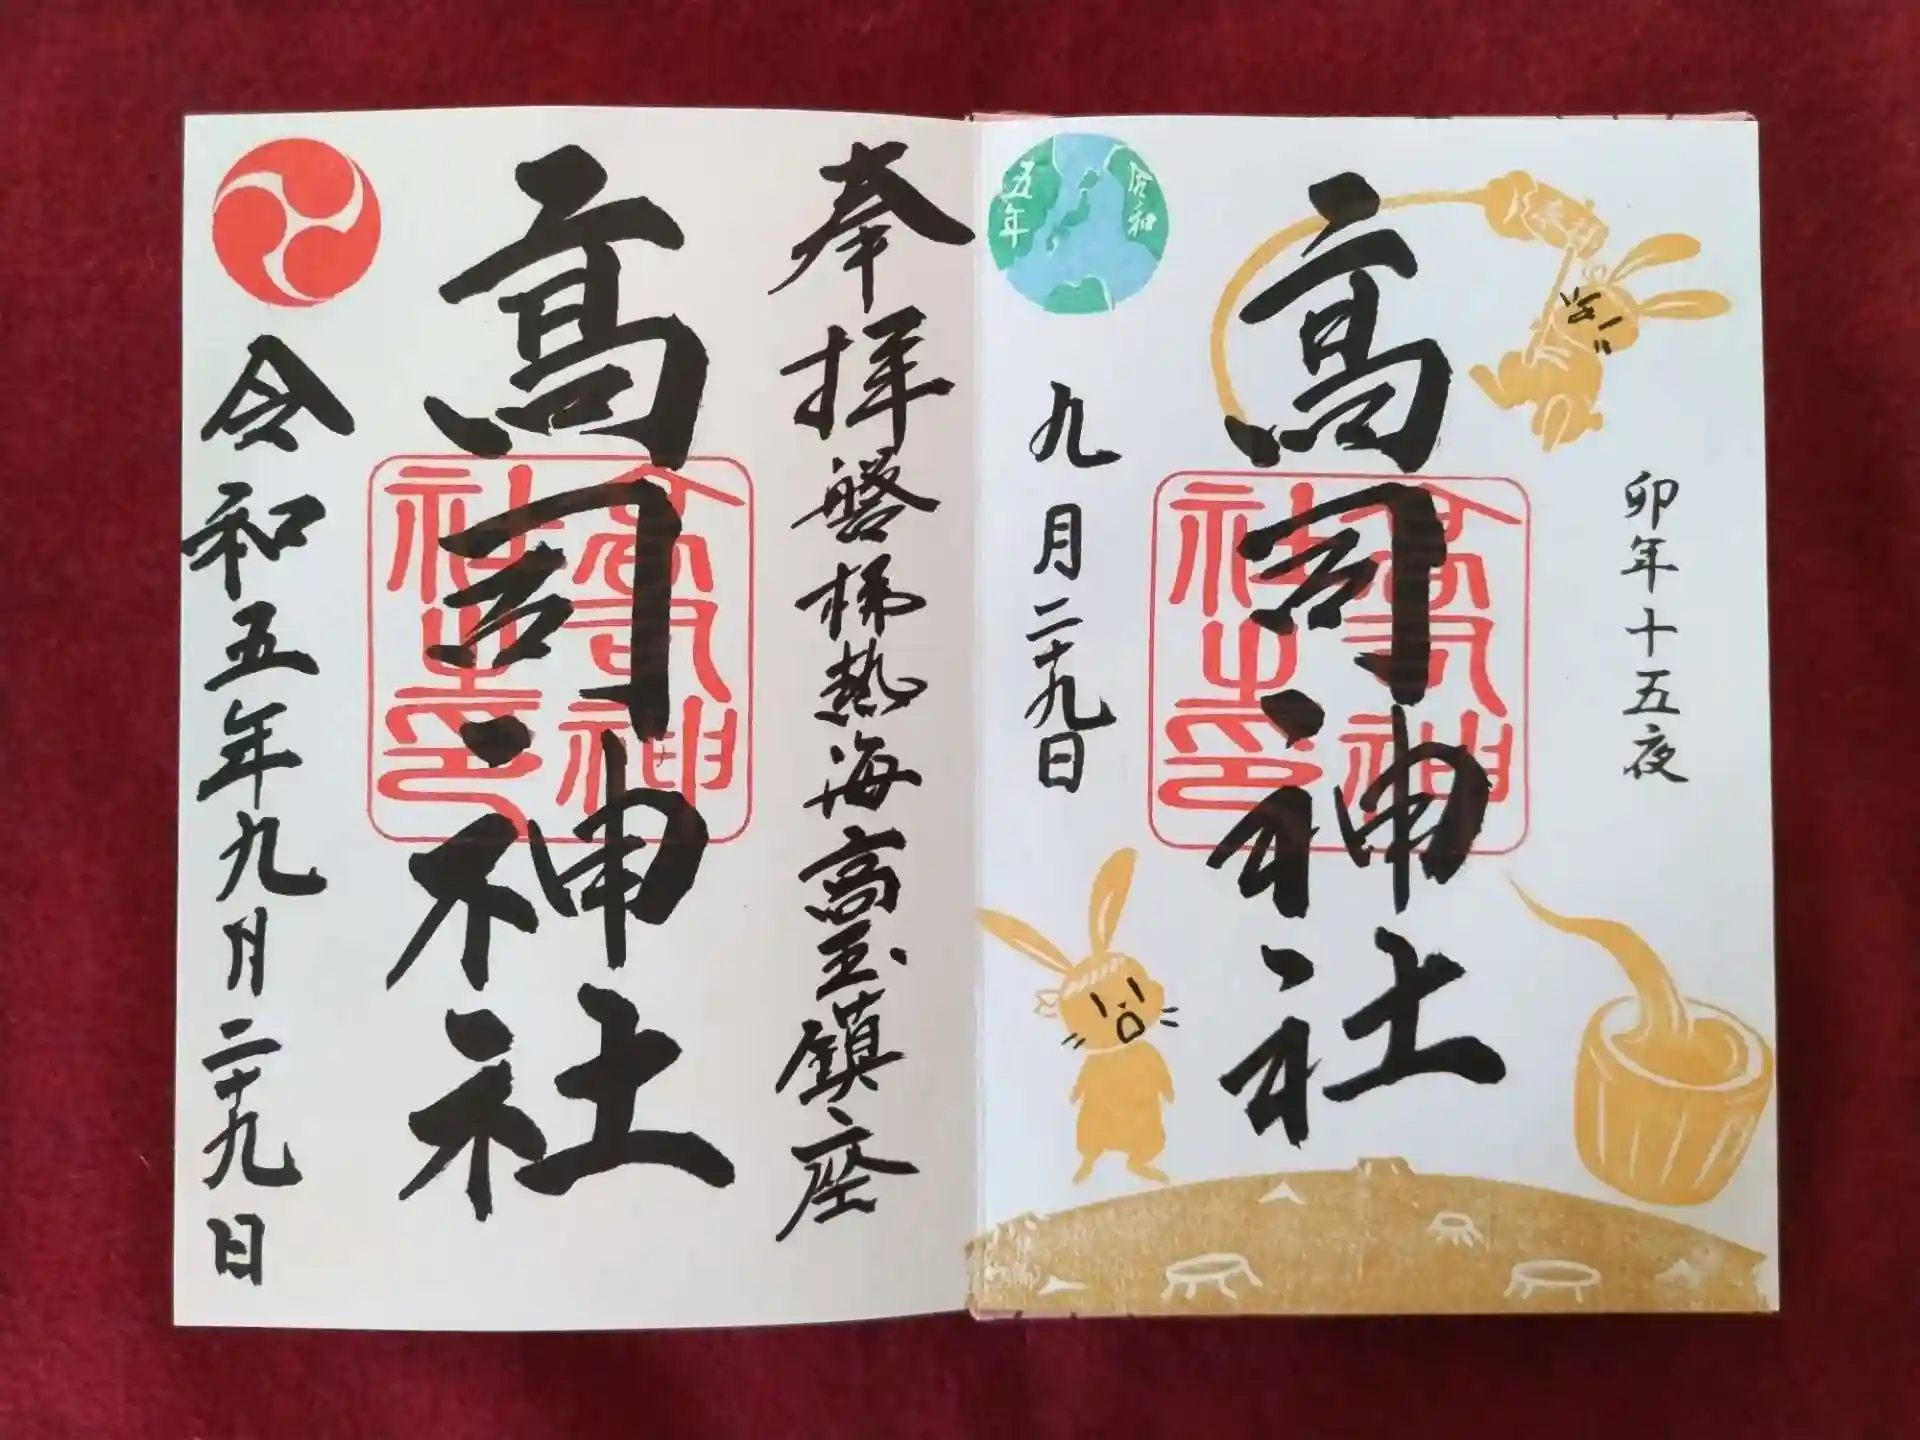 卯年十五夜
高司神社
高司神社之印
令和
五年
九月二十九日
奉拝 磐梯熱海高玉鎮座
高司神社
高司神社之印
令和五年九月二十九日